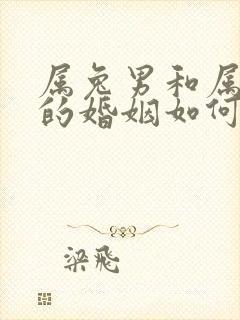 属兔男和属
的婚姻如何
梁飛